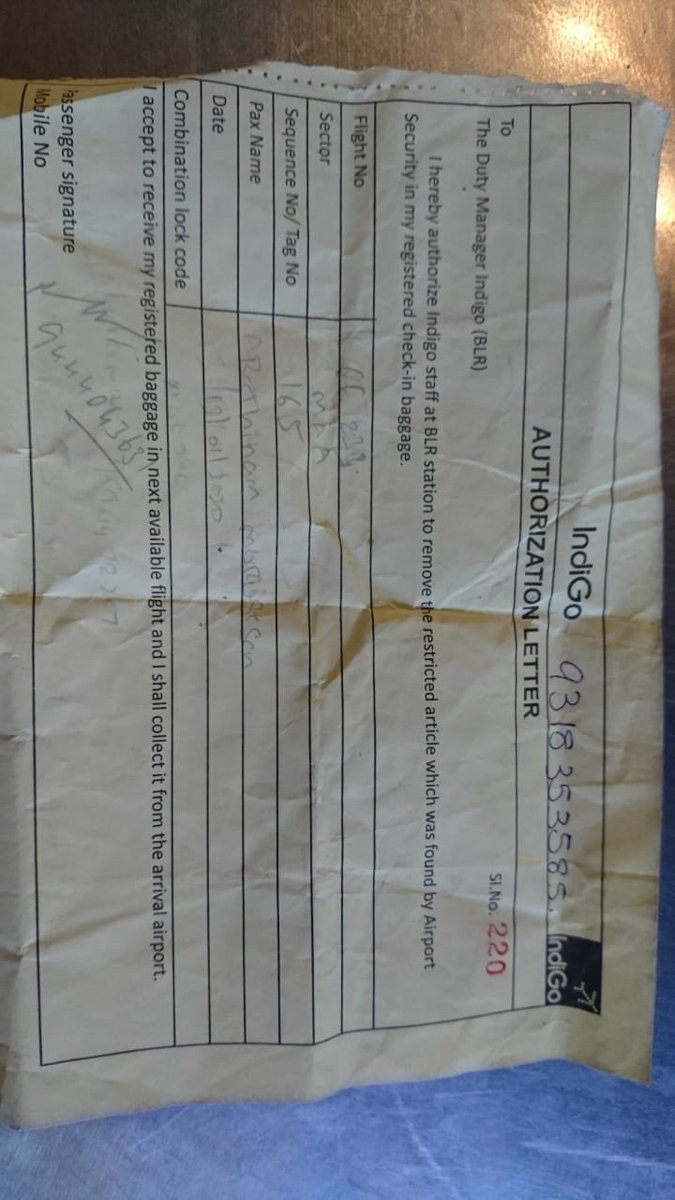 IndiGo 9318353585.
IndiGo
AUTHORIZATION LETTER
Sl.No. 220
To
The Duty Manager Indigo (BLR)
I hereby authorize Indigo staff at BLR station to remove the restricted article which was found by Airport
Security in my registered check-in baggage.
Flight No
Sector
Sequence No/ Tag No 165
Pax Name
Date
Combination lock code
I accept to receive my registered baggage in next available flight and I shall collect it from the arrival airport.
assenger signature
Mobile No